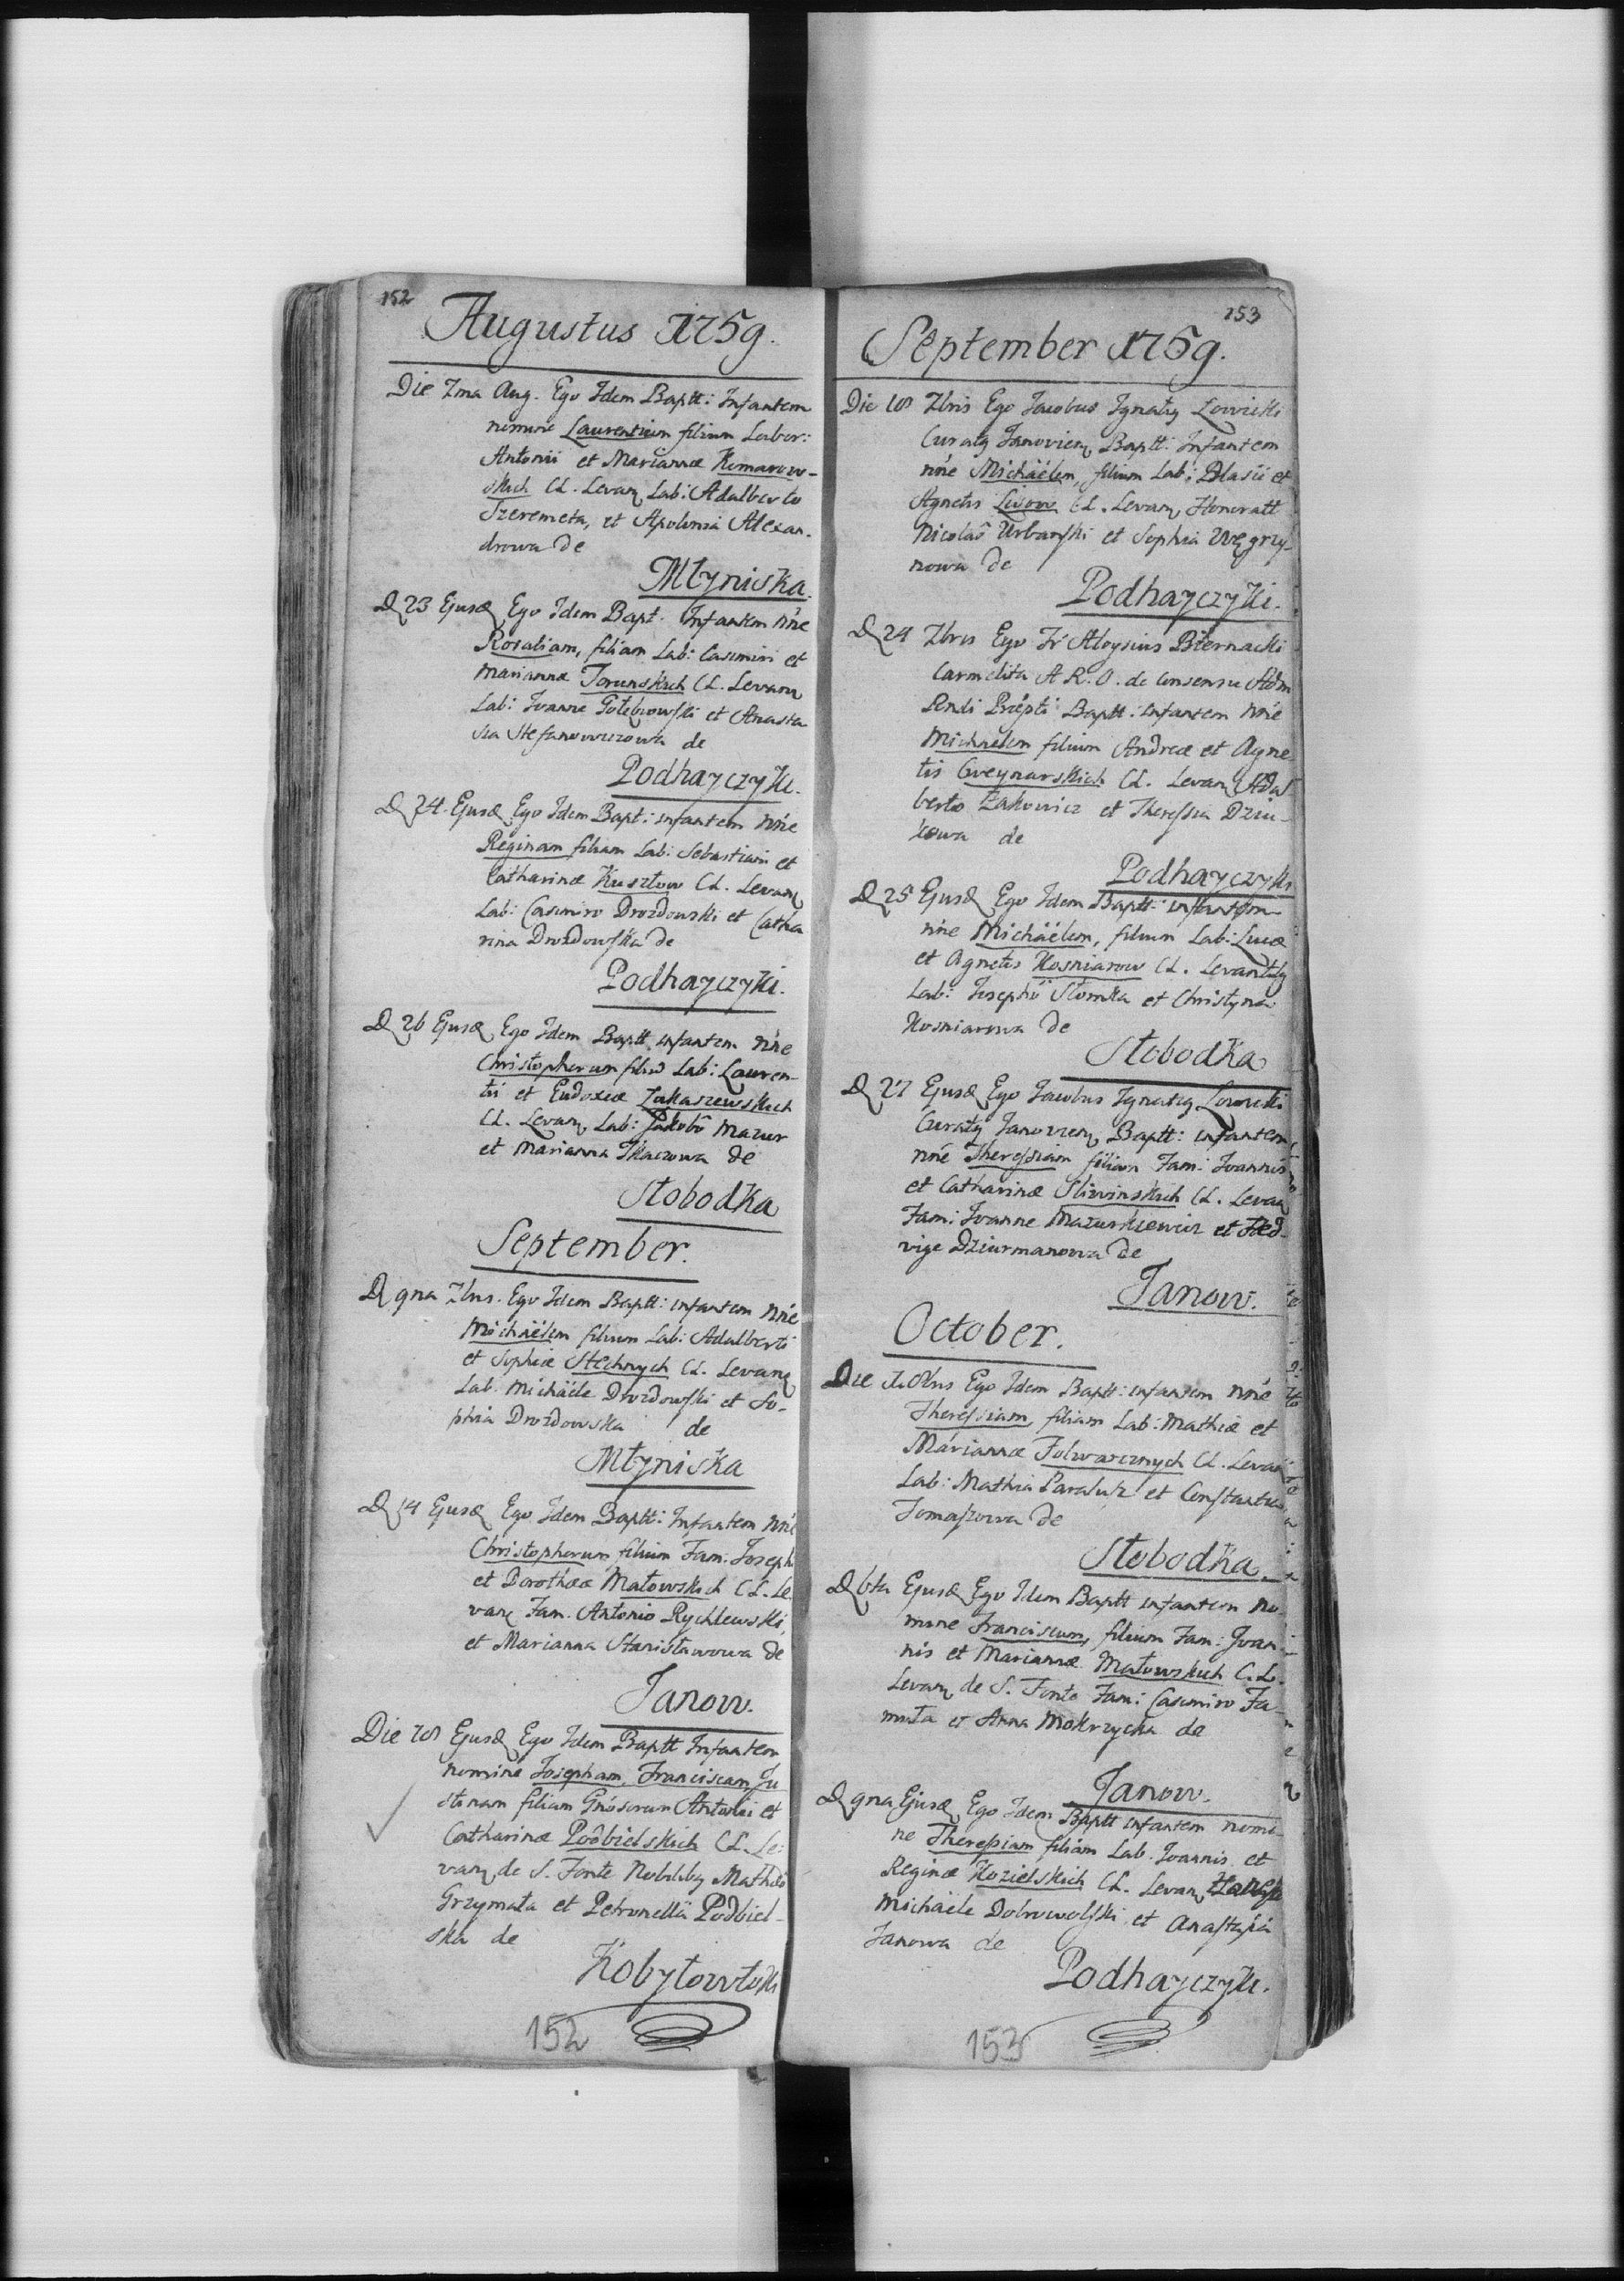 152
Augustus 1759.
Die 7ma Aug. Ego Idem Baptt: Infantem
nomine Laurentium filium Labor:
Antonii et Mariannæ Komarow-
skich CL. Levan Lab: Adalberto
Szeremeta, et Apolonia Alexan-
drowa de
Młyniska.
D 23 Ejusd Ego Idem Bapt. Infantem nṅe
Rosaliam, filiam Lab: Casimiri et
Mariannæ Torunskich CL. Levan
Lab: Joanne Gołębiowski et Anasta
sia Stefanowiczowa de
Podhayczyki.
D 24. Ejusd Ego Idem Bapt: infantem nṅe
Reginam filiam Lab: Sebastiani et
Catharinæ Kusztow CL. Levan
Lab: Casimiro Drozdowski et Catha
rina Drozdowska de
Podhayczyki.
D 26 Ejusd Ego Idem Baptt infantem nṅe
Christopherum filiū Lab: Lauren-
tii et Eudoxiæ Łukaszewskich
CL. Levan Lab: Jakobô Mazur
et Marianna Tkaczowa de
Słobodka
September.
D 9na 7bris. Ego Idem Baptt: infantem nṅe
Michäelem filium Lab: Adalberti
et Sophiæ Stechnych CL. Levan
Lab. Michäele Drozdowski et So-
phia Drozdowska de
Młyniska
D 14 Ejusd Ego Idem Baptt: Infantem nṅe
Christopherum filium Fam. Joseph
et Dorotheæ Małowskich CL. Le
van Fam. Antonio Rychlewski,
et Marianna Stanisławowa de
Janow.
Die Ejusd Ego Idem Baptt Infantem
nomine Josepham, Franciscam Ju
stinam filiam Gṅosorum Antonii et
Catharinæ Podbielskich CL. Le:
van de S. Fonte Nobilibg Mathæô
Grzymała et Petronellâ Podbiel-
ska de
Kobyłowłoki
152
153
September 1759.
Die 7bris Ego Jacobus Ignatg Łowicki
Curatg Janovien Baptt: Infantem
nṅe Michäelem, filium Lab: Blasii et
Agnetis Lisow CL. Levan Honoratt
Nicolaô Urbanski et Sophia Węgrzy-
nowa de
Podhayczyki.
D 24 7bris Ego Fr Aloysius Biernacki
Carmelita A. R. O. de Consensu Adm
Rndi Præpti Baptt: Infantem nṅe
Michaelem filium Andreæ et Agne-
tis Gweynarskich CL. Levan Adal
berto Żakowicz et Theressia Dziu-
kowa de
Podhayczyki
D 25 Ejusd Ego Idem Baptt: infantem
nṅe Michäelem, filium Lab: Lucæ
et Agnetis Kosniarow CL. Levantibg
Lab: Josephô Słomka et Christyna
Kosniarowa de
Słobodka
D 27 Ejusd Ego Jacobus Ignatig Łowicki
Curatg Janovien Baptt: infantem
nṅe Theressiam filiam Fam: Joannis
et Catharinæ Sliwinskich CL. Levan
Fam: Joanne Mazurkiewicz et Hed-
vige Dziurmanowa de
Janow.
October.
Die 1. 8bris Ego Idem Baptt: infantem nṅe
Theressiam, filiam Lab: Mathiæ et
Mariannæ Folwarcznych CL. Levan
Lab: Mathia Paraluk et Constantia
Tomaszowa de
Słobodka.
D 6ta Ejusd Ego Idem Baptt infantem no-
mine Franciscum, filium Fam: Joan-
nis et Mariannæ Małowskich C.L.
Levan de S. Fonte Fam: Casimiro Fa-
muła et Anna Mokrzycka de
Janow.
D 9na Ejusd Ego Idem Baptt infantem nomi-
ne Theressiam filiam Lab. Joannis et
Reginæ Kozielskich CL. Levan
Michäele Dobrowolski et Anastasia
Janowa de
Podhayczyki.
153